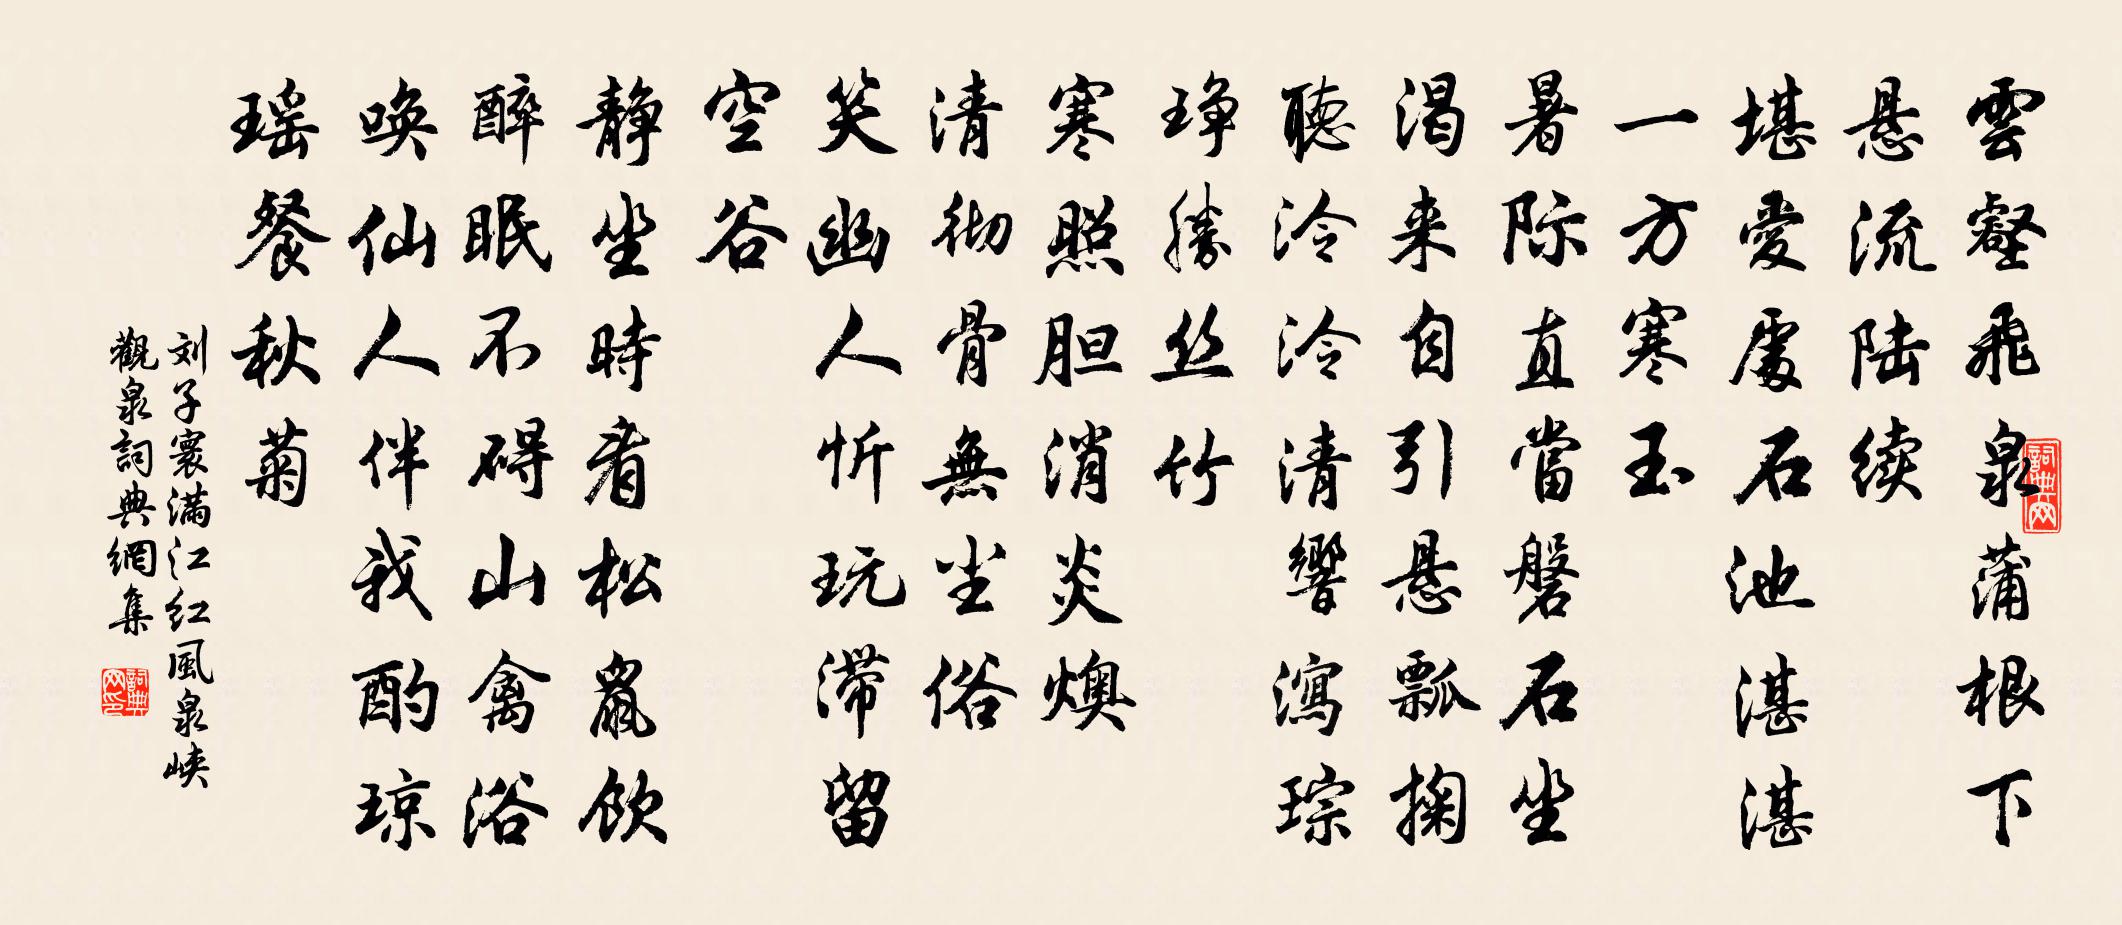 雲壑飛泉蒲根下
悬流陆续
堪愛處石池湛湛
一方寒玉
暑际直當磐石坐
渴来自引悬瓢掬
聽泠泠清響瀉琮
琤勝丝竹
寒照胆消炎燠
清彻骨無尘俗
笑幽人忻玩滞留
空谷
静坐時看松鼠飲
醉眠不碍山禽浴
唤仙人伴我酌琼
瑶餐秋菊
刘子寰满江红風泉峡
觀泉詞典網集
詞典网
詞典网印